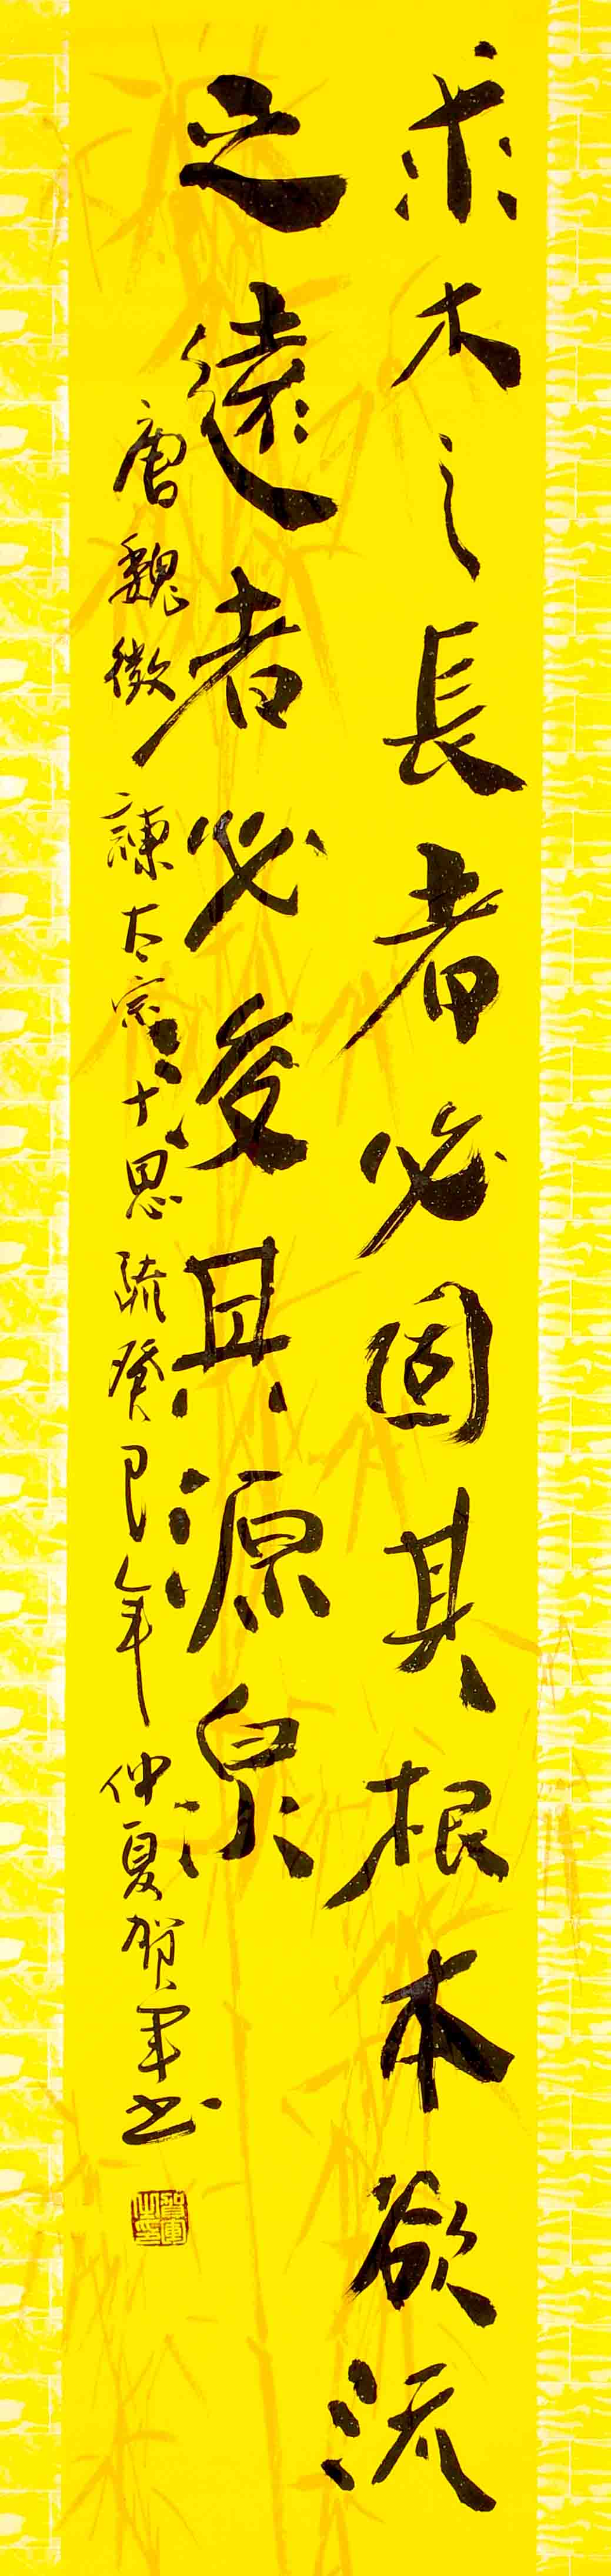 求木之長者必固其根本欲流
之遠者必浚其源泉
唐魏徵諫太宗十思疏癸巳年仲夏贺军书
賀軍之印